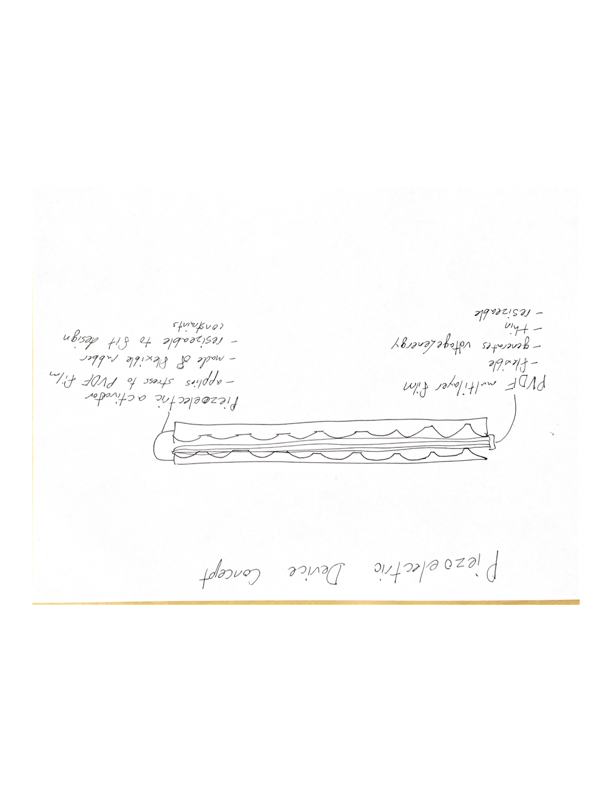 Piezoelectric Device Concept
PVDF multilayer film
- flexible
- generates voltage/energy
- thin
- resizeable
Piezoelectric activator
- applies stress to PVDF film
- made of flexible rubber
- resizeable to fit design
constraints